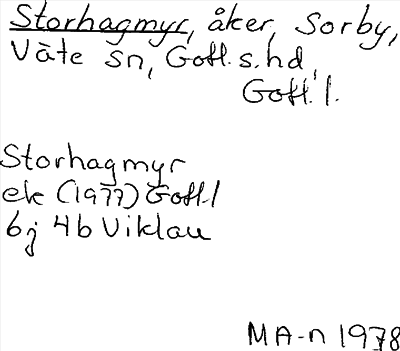 Storhagmyr, åker, Sorby,
Väte sn, Gotl. s. hd,
Gotl. l.
Storhagmyr
ek (1977) Gotl. l
6j 4b Viklau
MA-n 1978